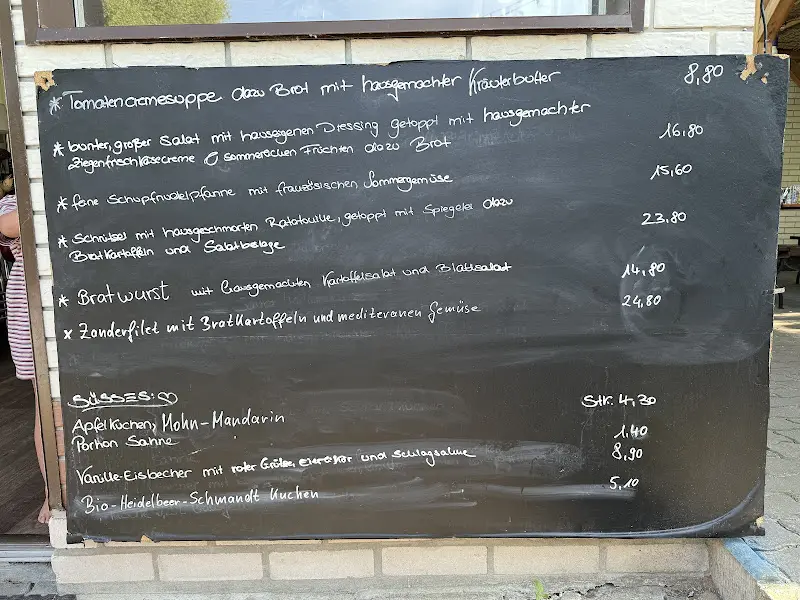 * Tomatencremesuppe dazu Brot mit hausgemachter Kräuterbutter 8,80
* bunter, großer Salat mit hauseigenen Dressing getoppt mit hausgemachter 16,80
Ziegenfrischkäsecreme & sommerlichen Früchten dazu Brot
* feine Schupfnudelpfanne mit französischen Sommergemüse 15,60
* Schnitzel mit hausgeschmorten Ratatouille, getoppt mit Spiegelei dazu 23,80
Bratkartoffeln und Salatbeilage
* Bratwurst mit hausgemachten Kartoffelsalat und Blattsalat 14,80
* Zanderfilet mit Bratkartoffeln und mediteranen Gemüse 24,80
SÜSSES: ♡
Apfelkuchen, Mohn-Mandarin Stk. 4,30
Portion Sahne 1,40
Vanille-Eisbecher mit roter Grütze, eierlikör und schlagsahne 8,90
Bio-Heidelbeer-Schmandt Kuchen 5,10